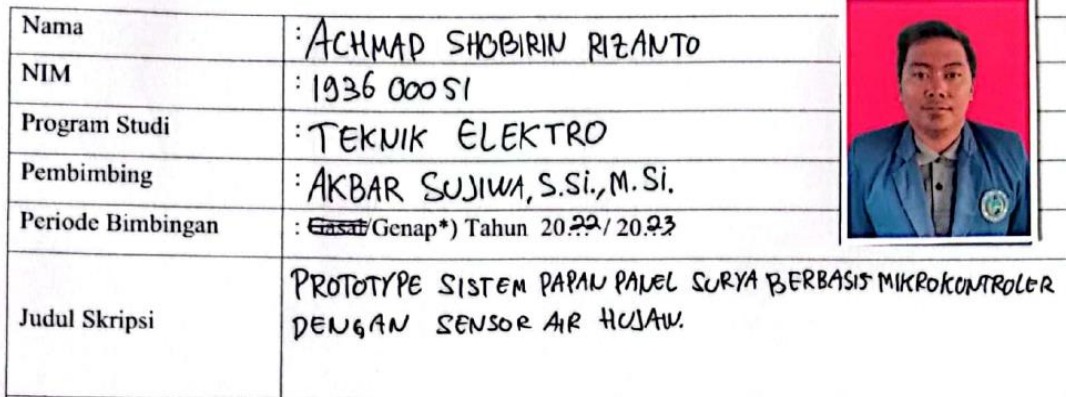 Nama : ACHMAD SHOBIRIN RIZANTO
NIM : 193600051
Program Studi : TEKNIK ELEKTRO
Pembimbing : AKBAR SUJIWA, S.Si., M.Si.
Periode Bimbingan : Gasal/Genap*) Tahun 2022/2023
Judul Skripsi PROTOTYPE SISTEM PAPAN PANEL SURYA BERBASIS MIKROKONTROLER
DENGAN SENSOR AIR HUJAN.